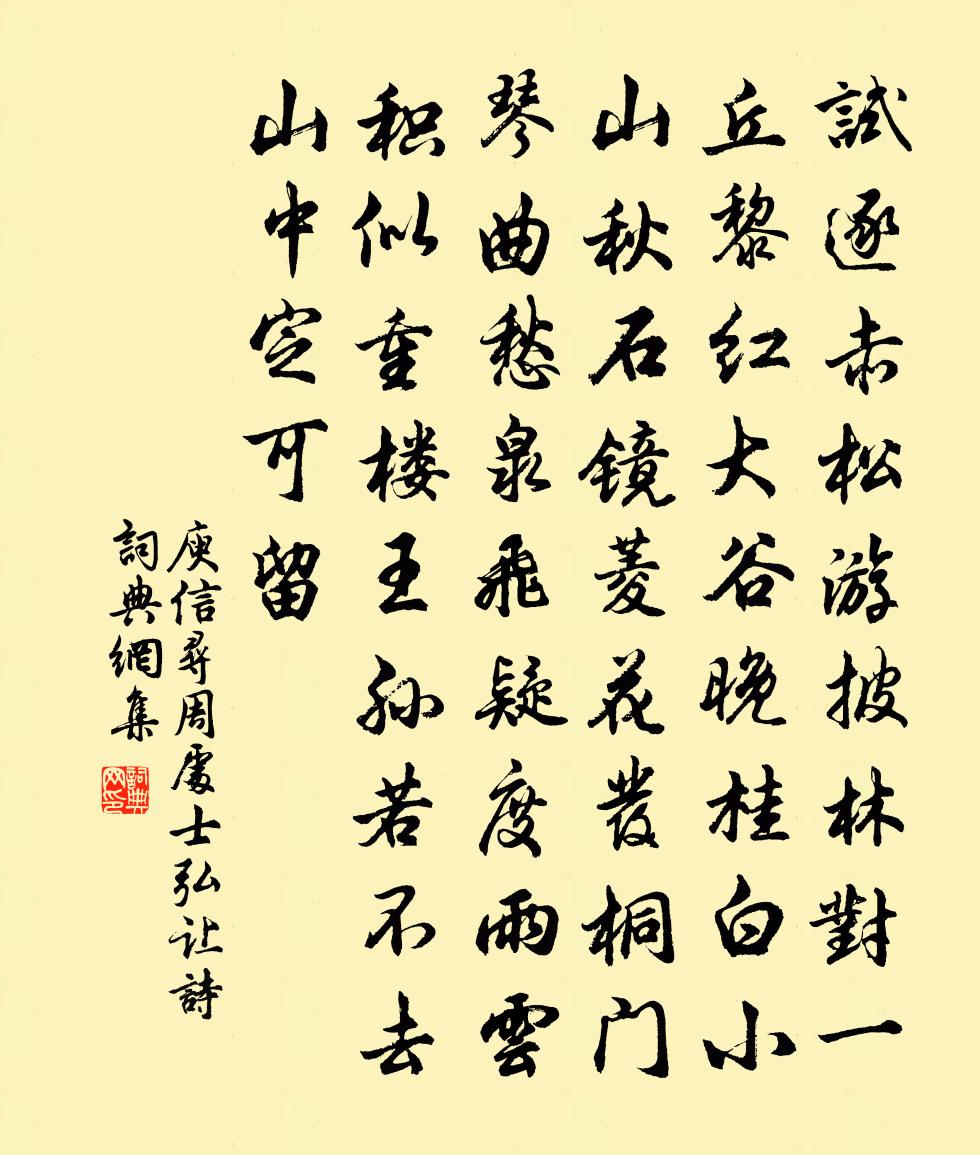 試逐赤松游披林對一
丘黎红大谷晚桂白小
山秋石镜菱花發桐门
琴曲愁泉飛疑度雨雲
积似重楼王孙若不去
山中定可留
庾信尋周處士弘让詩
詞典網集
詞典网印